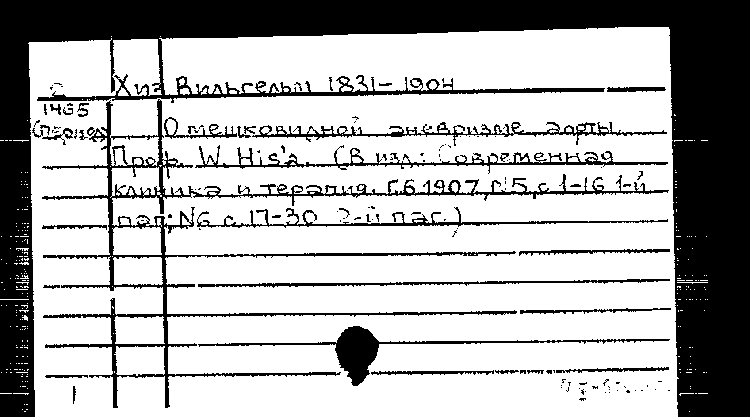 2 Хиз, Вильгельм 1831-1904
1465
(период) О мешковидной аневризме аорты
Проф. W. His'a. (В изд.: Современная
клиника и терапия. Г.6 1907, №5, с 1-16 1-й
паг; N6 с. 17-30 2-й паг.)
1